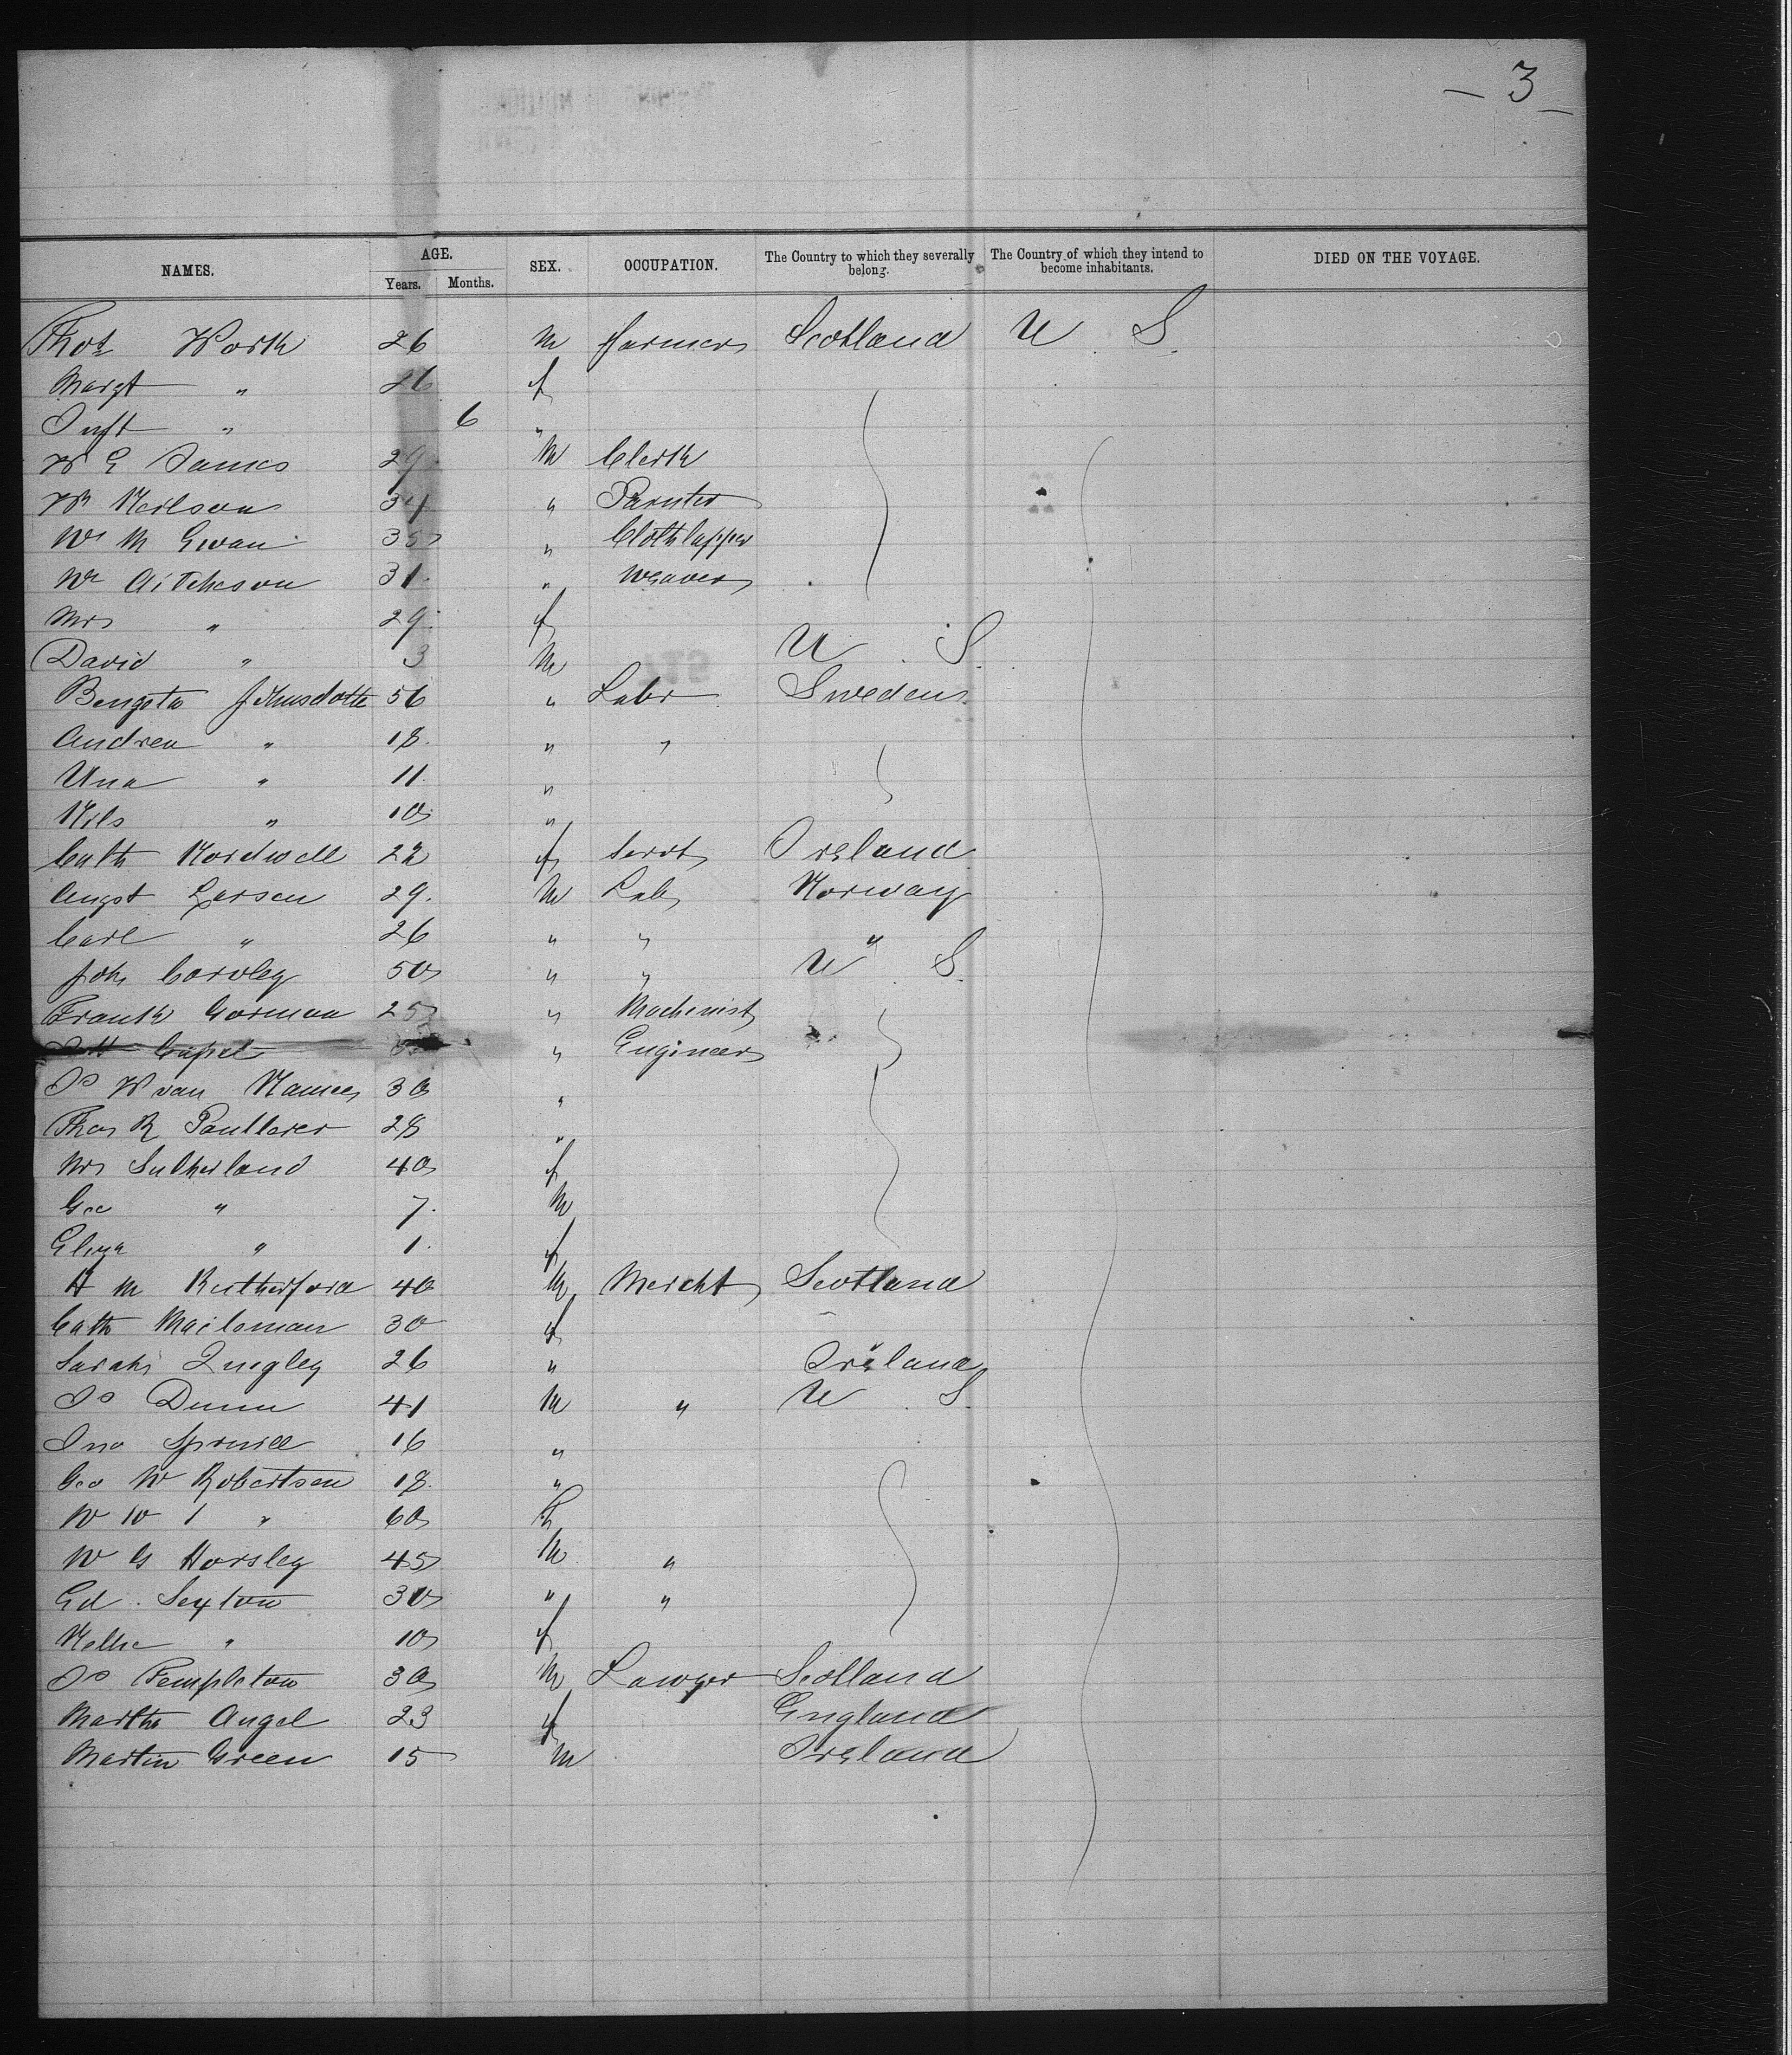 — 3 —
NAMES. AGE. Years. Months. SEX. OCCUPATION. The Country to which they severally belong. The Country of which they intend to become inhabitants. DIED ON THE VOYAGE.
Thos Work 26 M farmer Scotland U S.
Margt " 26 f
Inft " 6 "
W E James 29 M Clerk
Wm Neilson 34 " Painter
Wm M Ewan 35 " Cloth lapper
Wm Aitcheson 31 " Weaver
Mrs " 29 f
David " 3 M U S.
Bengsta 56 " Labr Sweden
Andrea " 18 " "
Una " 11 "
Nils " 10 "
Cath Nordwell 22 f Servt Ireland
Augst Larsen 29 M Lab Norway
Carl " 26 " " "
John Corvley 50 " " U S.
Frank Gorman 25 " Machinist
Capel " Engineer
Js W van Namee 30 "
Thos R 28 "
Mrs Sutherland 40 f
Geo " 7 M
Eliza " 1 f
A M Rutherford 40 M Mercht Scotland
Cath 30 f
Sarah Quigley 26 " Ireland
Js Dunn 41 M " U S.
Jno Spruill 16 "
Geo W Robertson 18 "
W W " 60
W G Horsley 45 M "
Ed Sexton 30 " "
Nellie " 10 f
Js Templeton 30 M Lawyer Scotland
Martha Angel 23 f England
Martin Green 15 M Ireland